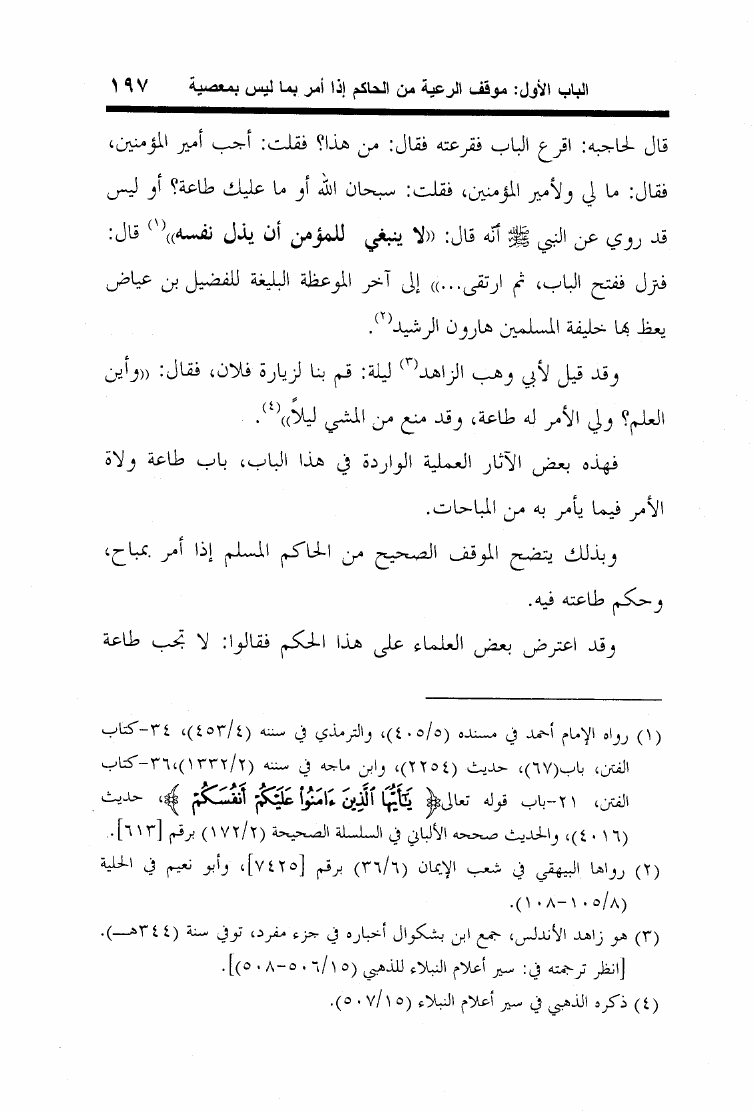 الباب الأول: موقف الرعية من الحاكم إذا أمر بما ليس بمعصية ١٩٧
قال لحاجبه: اقرع الباب فقرعته فقال: من هذا؟ فقلت: أجب أمير المؤمنين،
فقال: ما لي ولأمير المؤمنين، فقلت: سبحان الله أو ما عليك طاعة؟ أو ليس
قد روي عن النبي ﷺ أنّه قال: ((لا ينبغي للمؤمن أن يذل نفسه))(١) قال:
فنزل ففتح الباب، ثم ارتقى...)) إلى آخر الموعظة البليغة للفضيل بن عياض
يعظ بها خليفة المسلمين هارون الرشيد(٢).
وقد قيل لأبي وهب الزاهد(٣) ليلة: قم بنا لزيارة فلان، فقال: ((وأين
العلم؟ ولي الأمر له طاعة، وقد منع من المشي ليلاً))(٤).
فهذه بعض الآثار العملية الواردة في هذا الباب، باب طاعة ولاة
الأمر فيما يأمر به من المباحات.
وبذلك يتضح الموقف الصحيح من الحاكم المسلم إذا أمر بمباح،
وحكم طاعته فيه.
وقد اعترض بعض العلماء على هذا الحكم فقالوا: لا تجب طاعة
(١) رواه الإمام أحمد في مسنده (٤٠٥/٥)، والترمذي في سننه (٤٥٣/٤)، ٣٤-كتاب
الفتن، باب(٦٧)، حديث (٢٢٥٤)، وابن ماجه في سننه (١٣٣٢/٢)،٣٦-كتاب
الفتن، ٢١-باب قوله تعالى﴿ يَٰٓأَيُّهَا ٱلَّذِينَ ءَامَنُوا۟ عَلَيْكُمْ أَنفُسَكُمْ ﴾، حديث
(٤٠١٦)، والحديث صححه الألباني في السلسلة الصحيحة (١٧٢/٢) برقم [٦١٣].
(٢) رواها البيهقي في شعب الإيمان (٣٦/٦) برقم [٧٤٢٥]، وأبو نعيم في الحلية
(١٠٥/٨-١٠٨).
(٣) هو زاهد الأندلس، جمع ابن بشكوال أخباره في جزء مفرد، توفي سنة (٣٤٤هـ).
[انظر ترجمته في: سير أعلام النبلاء للذهبي (٥٠٦/١٥-٥٠٨)].
(٤) ذكره الذهبي في سير أعلام النبلاء (٥٠٧/١٥).